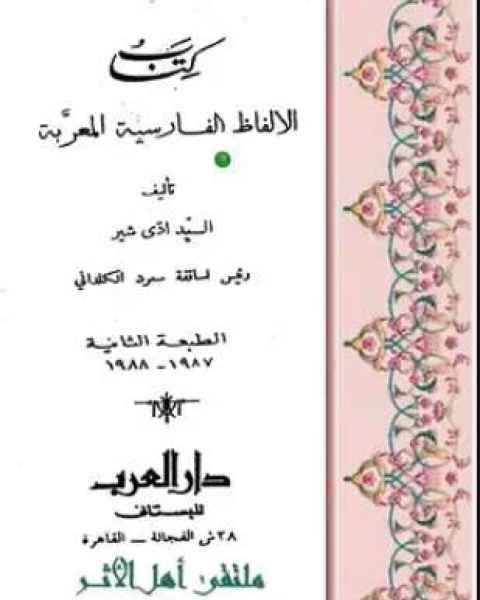 كتاب
الالفاظ الفارسية المعرَّبة
تأليف
السيّد ادّى شير
رئيس اساقفة سعرد الكلداني
الطبعة الثانية
١٩٨٧ - ١٩٨٨
دار العرب
للبستانى
٢٨ ش الفجالة - القاهرة
ملتقى أهل الأثر